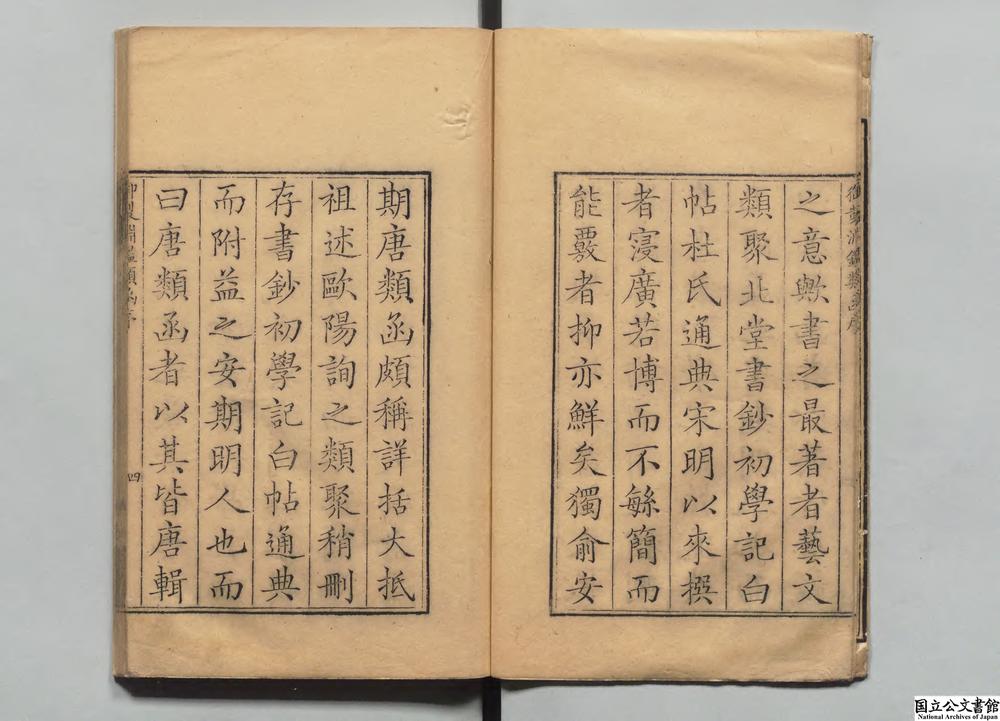 之意歟書之最著者藝文
類聚北堂書鈔初學記白
帖杜氏通典宋明以來撰
者寖廣若博而不繇簡而
能覈者抑亦鮮矣獨俞安
期唐類函頗稱詳括大抵
祖述歐陽詢之類聚稍刪
存書鈔初學記白帖通典
而附益之安期明人也而
曰唐類函者以其皆唐輯
四
国立公文書館
National Archives of Japan